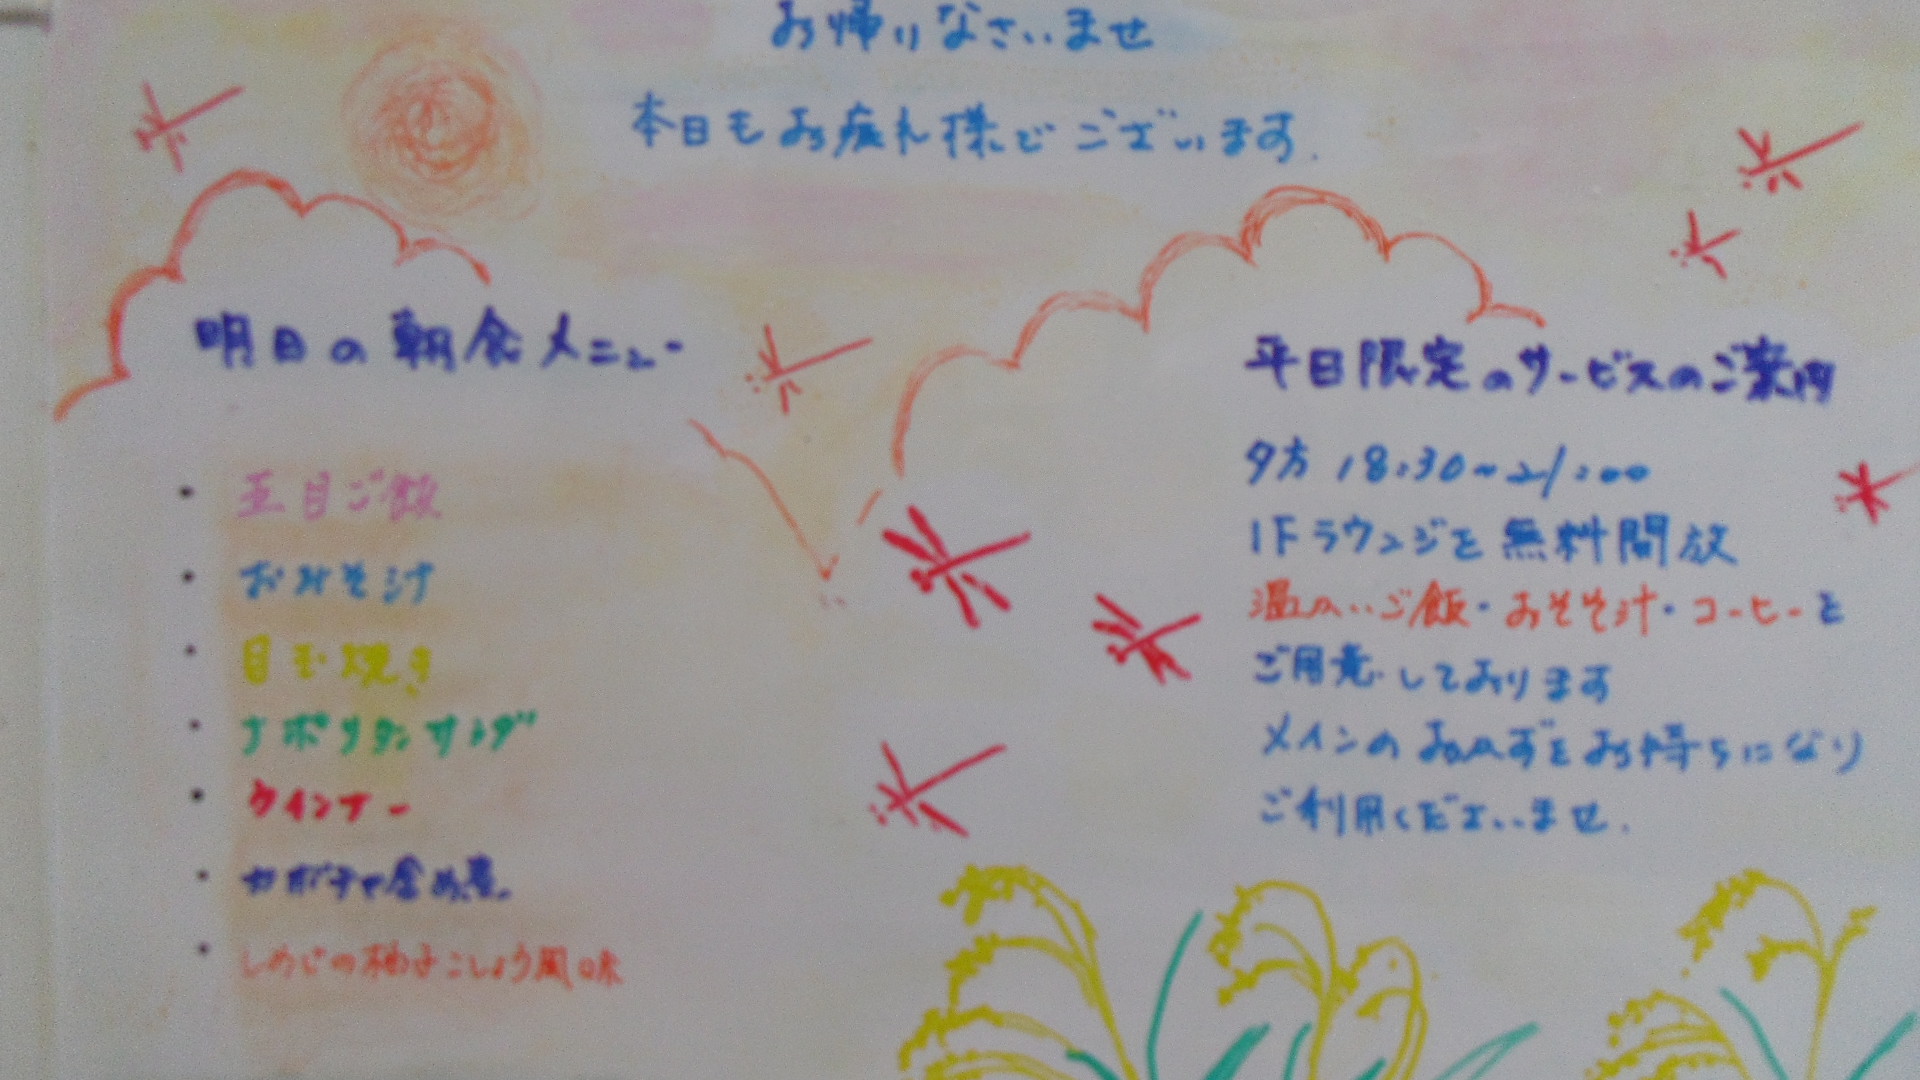 お帰りなさいませ
本日もお疲れ様でございます.
明日の朝食メニュー
・五目ご飯
・おみそ汁
・目玉焼き
・ナポリタンサラダ
・ウインナー
・カボチャ含め煮
・しめじの柚子こしょう風味
平日限定のサービスのご案内
夕方 18:30~21:00
1Fラウンジを無料開放
温かいご飯・おみそ汁・コーヒーを
ご用意しております
メインのおかずをお持ちになり
ご利用くださいませ.